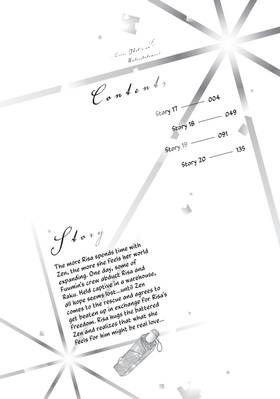 Contents
Story 17 004
Story 18 049
Story 19 091
Story 20 135
Story
The more Risa spends time with
Zen, the more she feels her world
expanding. One day, some of
Fuumin's crew abduct Risa and
Raku. Held captive in a warehouse,
all hope seems lost...until Zen
comes to the rescue and agrees to
get beaten up in exchange for Risa's
freedom. Risa hugs the battered
Zen and realizes that what she
feels for him might be real love...